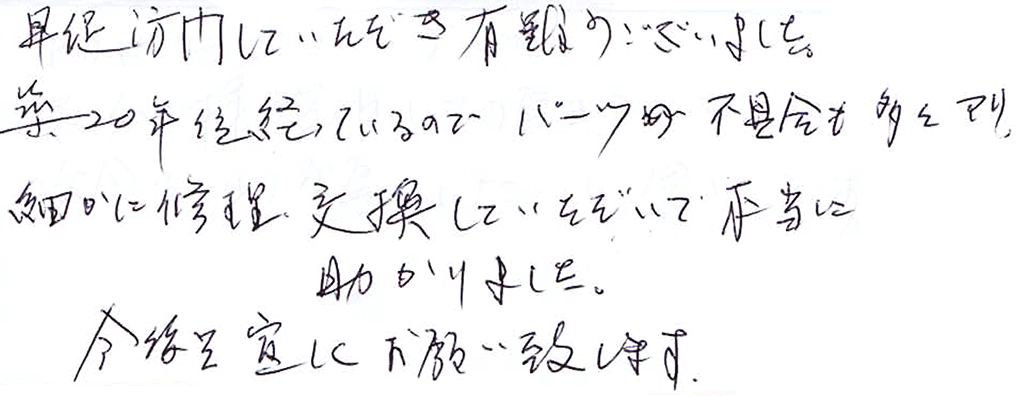 早速訪問していただき有難うございました。
築20年位経っているので パーツの不具合も多くアリ、
細かに修理、交換していただいて本当に
助かりました。
今後共宜しくお願い致します.